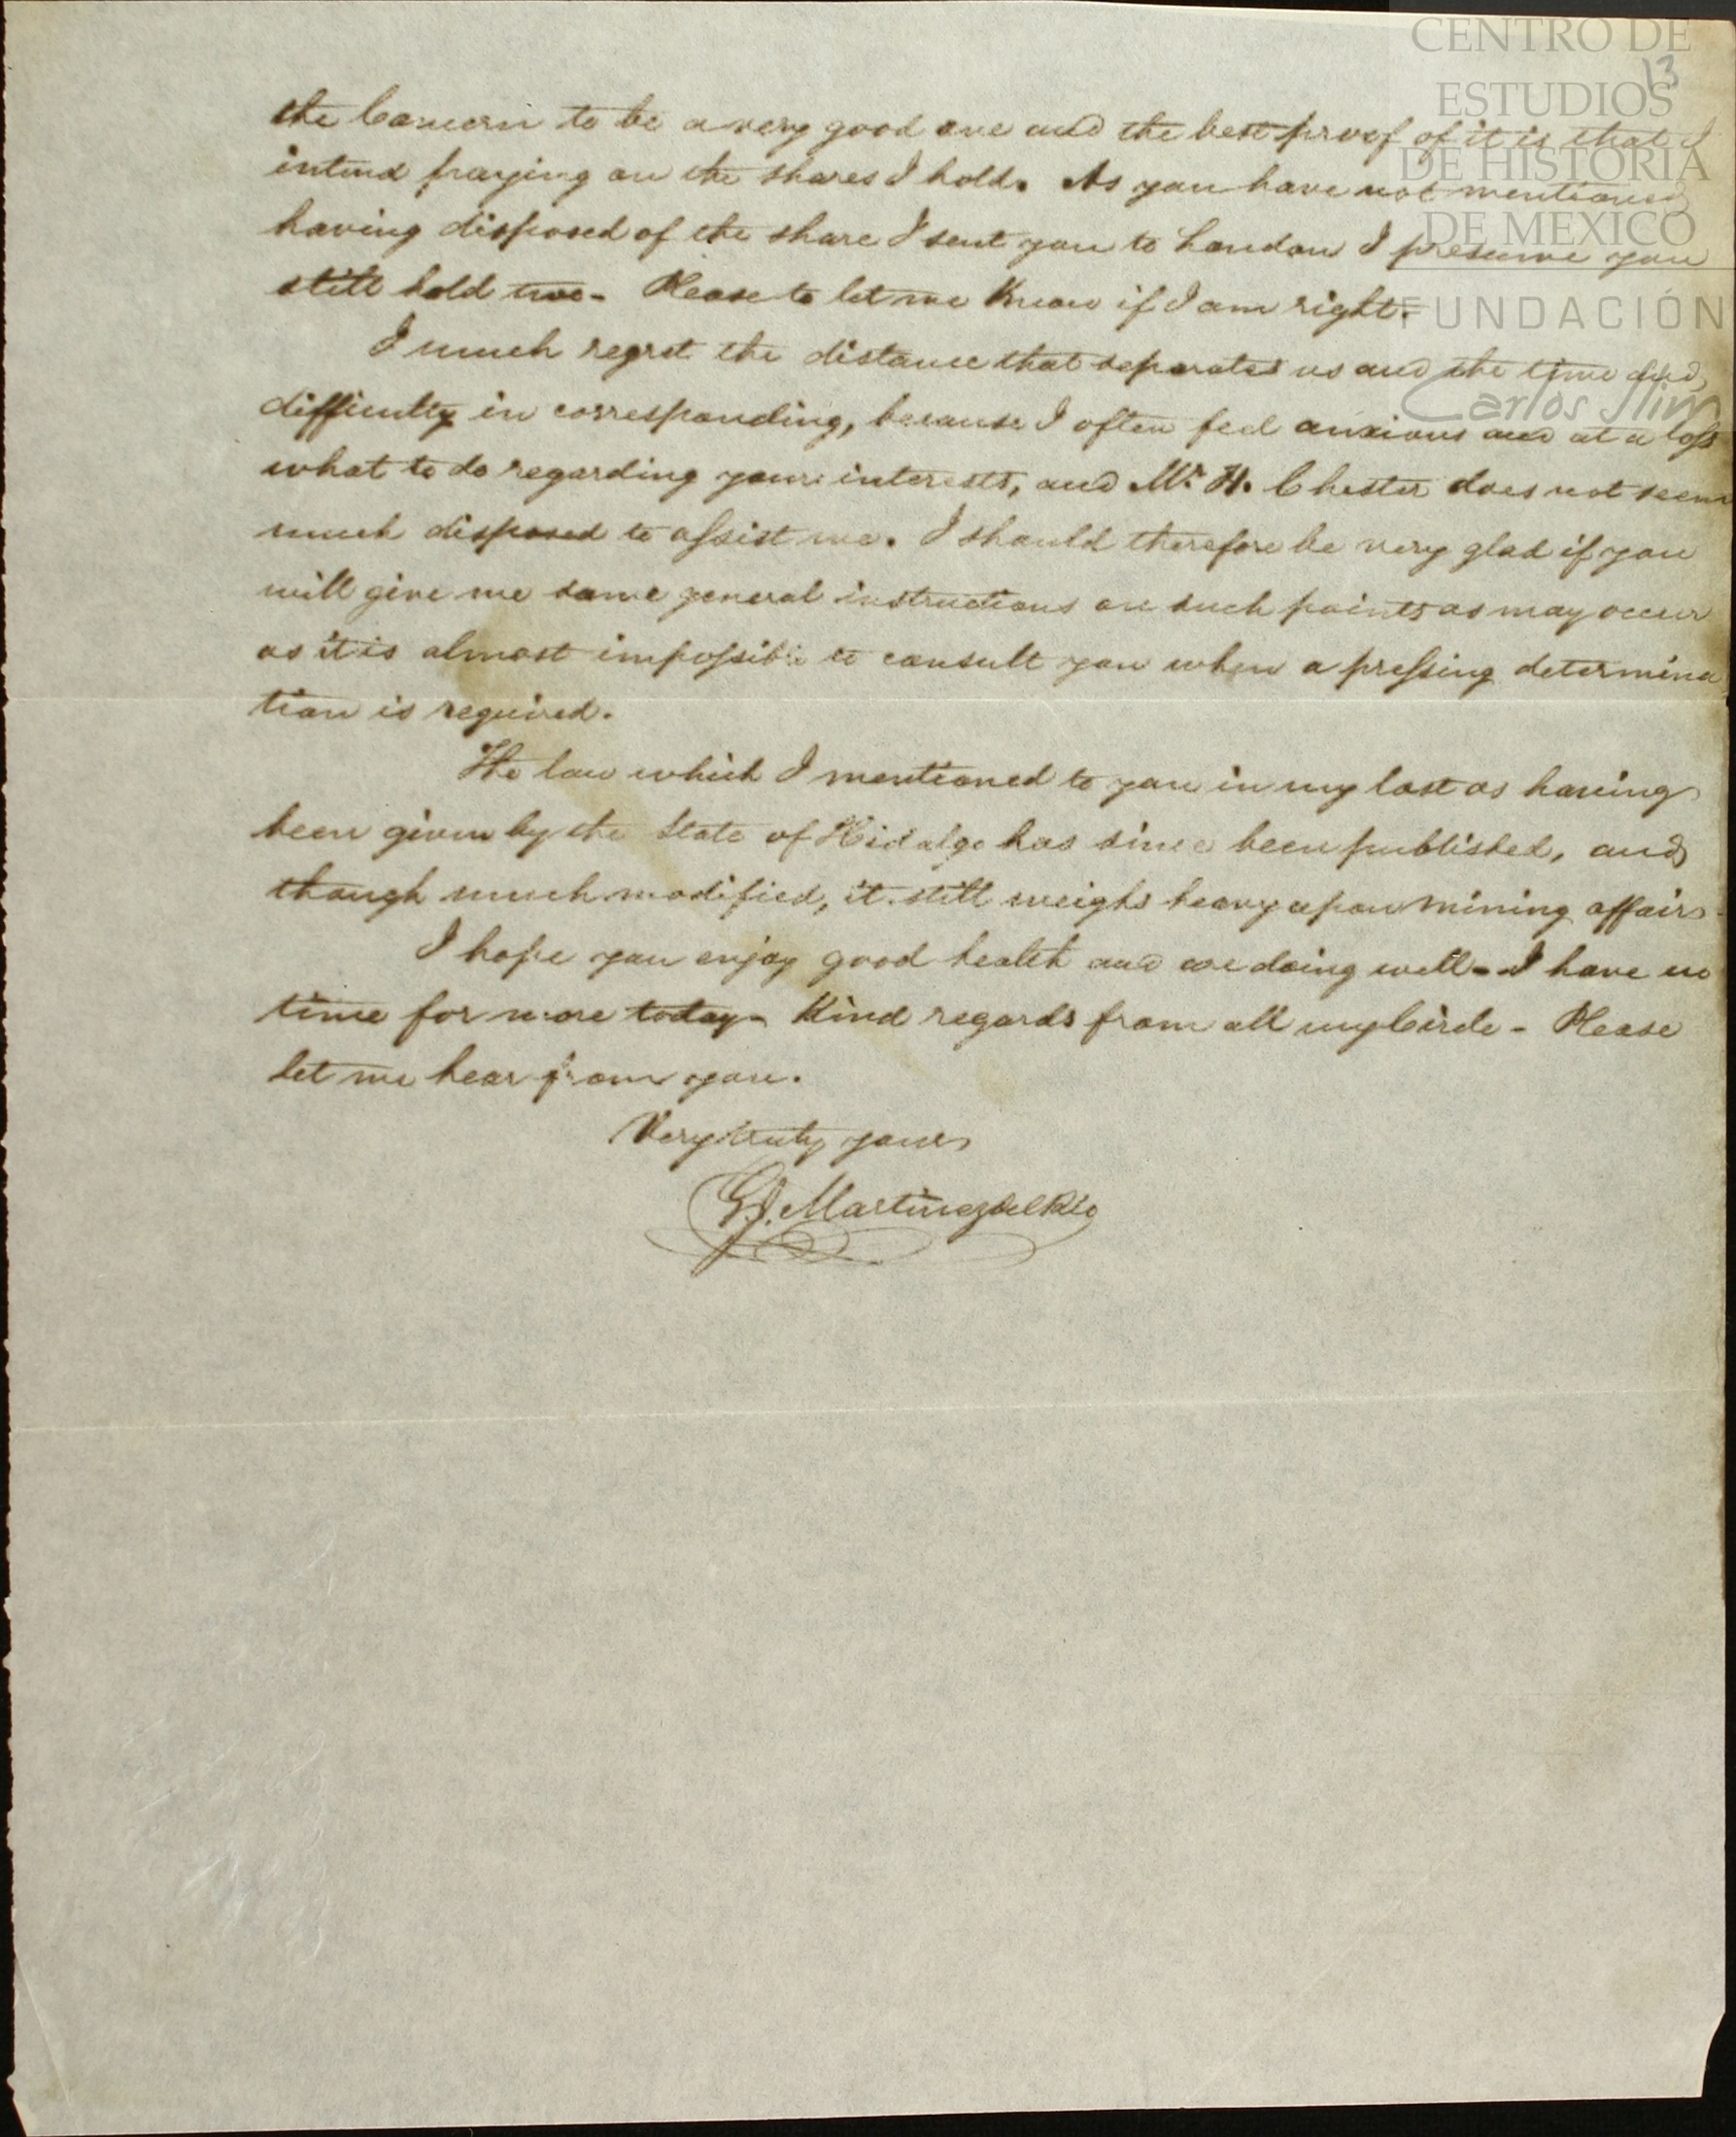 CENTRO DE
ESTUDIOS
DE HISTORIA
DE MEXICO
FUNDACIÓN
Carlos Slim
13
the Concern to be a very good one and the best proof of it is that I
intend paying on the shares I hold. As you have not mentioned
having disposed of the share I sent you to London I presume you
still hold two - Please to let me Know if I am right.
I much regret the distance that separates us and the time and
difficulty in corresponding, because I often feel anxious and at a loss
what to do regarding your interests, and Mr. H. Chester does not seem
much disposed to assist me. I should therefore be very glad if you
will give me some general instructions on such points as may occur
as it is almost impossible to consult you when a pressing determina
tion is required.
The law which I mentioned to you in my last as having
been given by the State of Hidalgo has since been published, and
though much modified, it still weighs heavy upon mining affairs
I hope you enjoy good health and are doing well - I have no
time for more today - Kind regards from all my Circle - Please
let me hear from you.
Very truly yours
G.J. Martinez del Rio